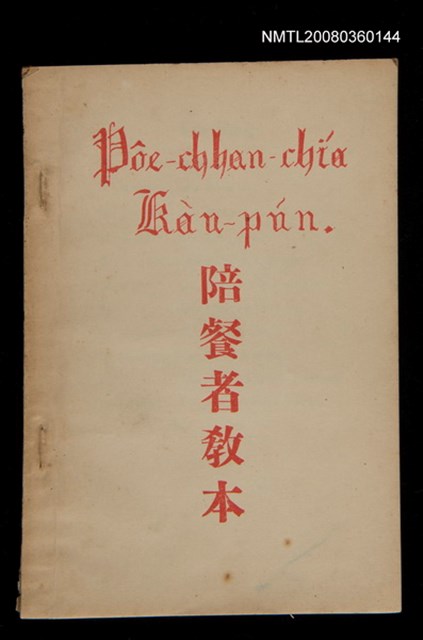 NMTL20080360144
Pôe-chhan-chiá
Kàu-pún.
陪餐者教本